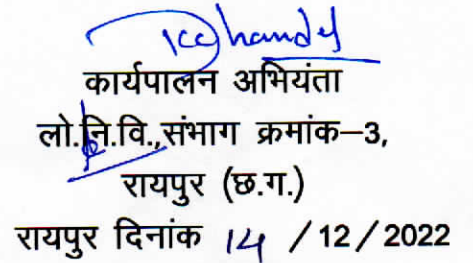 कार्यपालन अभियंता
लो.नि.वि.,संभाग क्रमांक–3,
रायपुर (छ.ग.)
रायपुर दिनांक 14 /12/2022